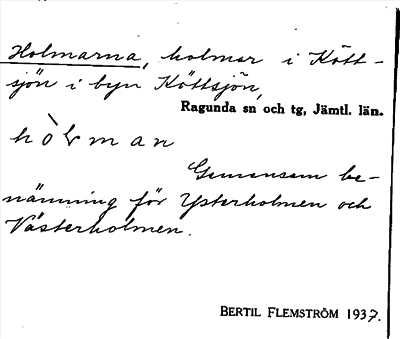 Holmarna, holmar i Kött-
sjön i byn Köttsjön,
Ragunda sn och tg, Jämtl. län.
hòlman
Gemensam be-
nämning för Ysterholmen och
Västerholmen.
BERTIL FLEMSTRÖM 1937.